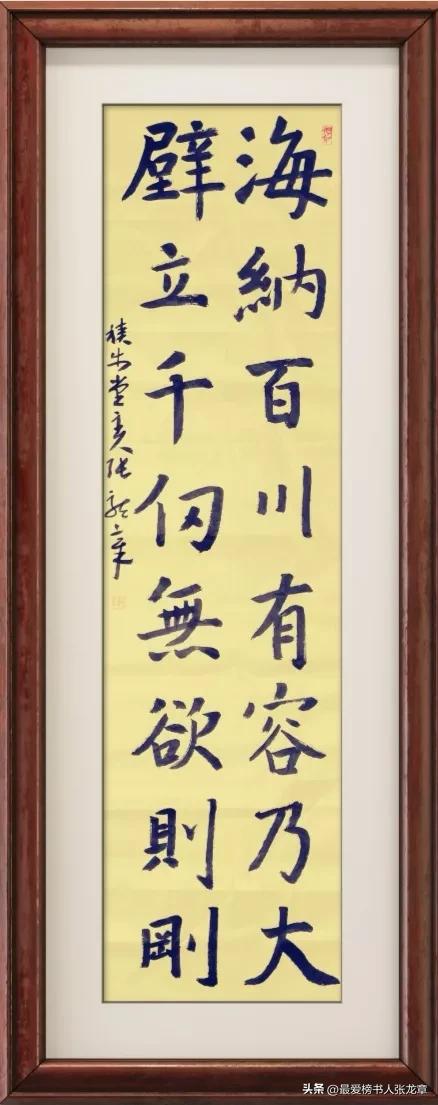 海納百川有容乃大
壁立千仞無欲則剛
张龙章
头条 @最爱榜书人张龙章